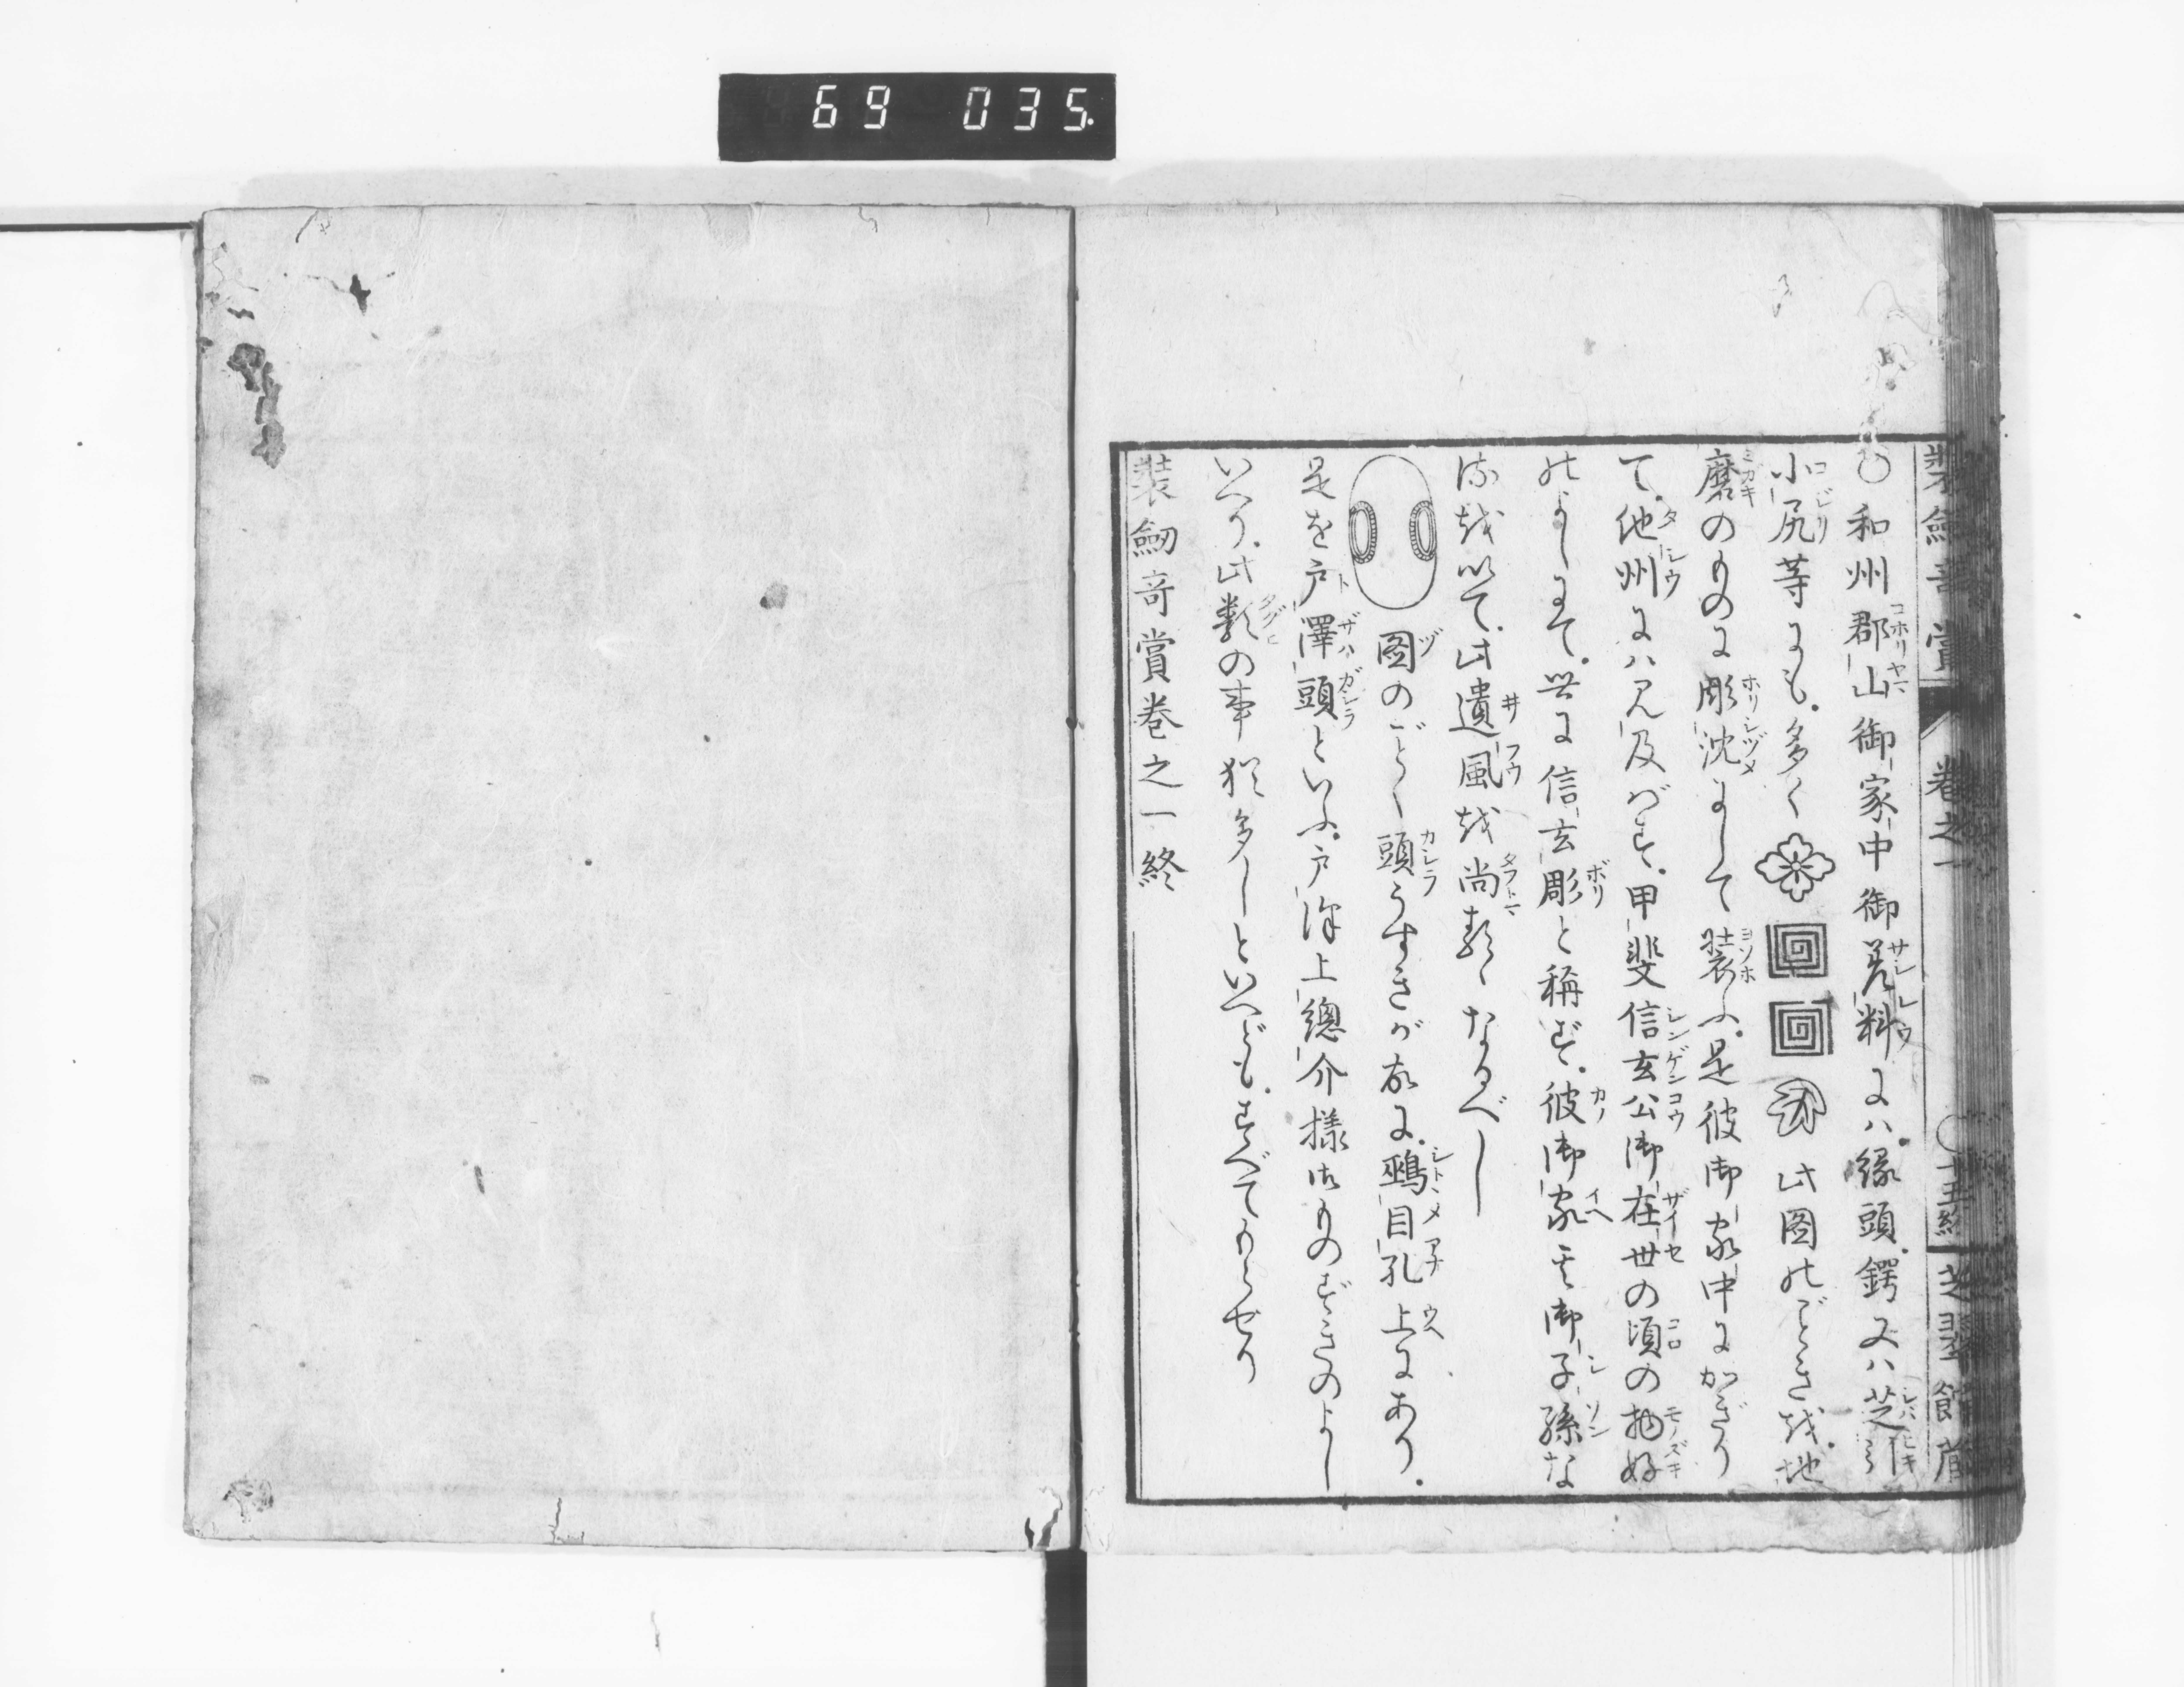 69 035.
装劔奇賞 卷之一 ○十五終 芝翠館蔵
○和州郡山御家中御差料にハ縁頭鍔又ハ芝引
小尻等にも多く此図のごときを地
磨のものに彫沈にして装ふ是彼御家中にかぎり
て他州にハ見及ばず甲斐信玄公御在世の頃の物好
のよしにて世に信玄彫と称ず彼御家も御子孫な
るを以て此遺風を尚るゝなるべし
図のごとく頭うすきが故に鵐目孔上にあり
是を戸澤頭といふ戸澤上總介様御ものずきのよし
いへり此類の事猶多しといへどもすべてもらせり
装劔奇賞卷之一終